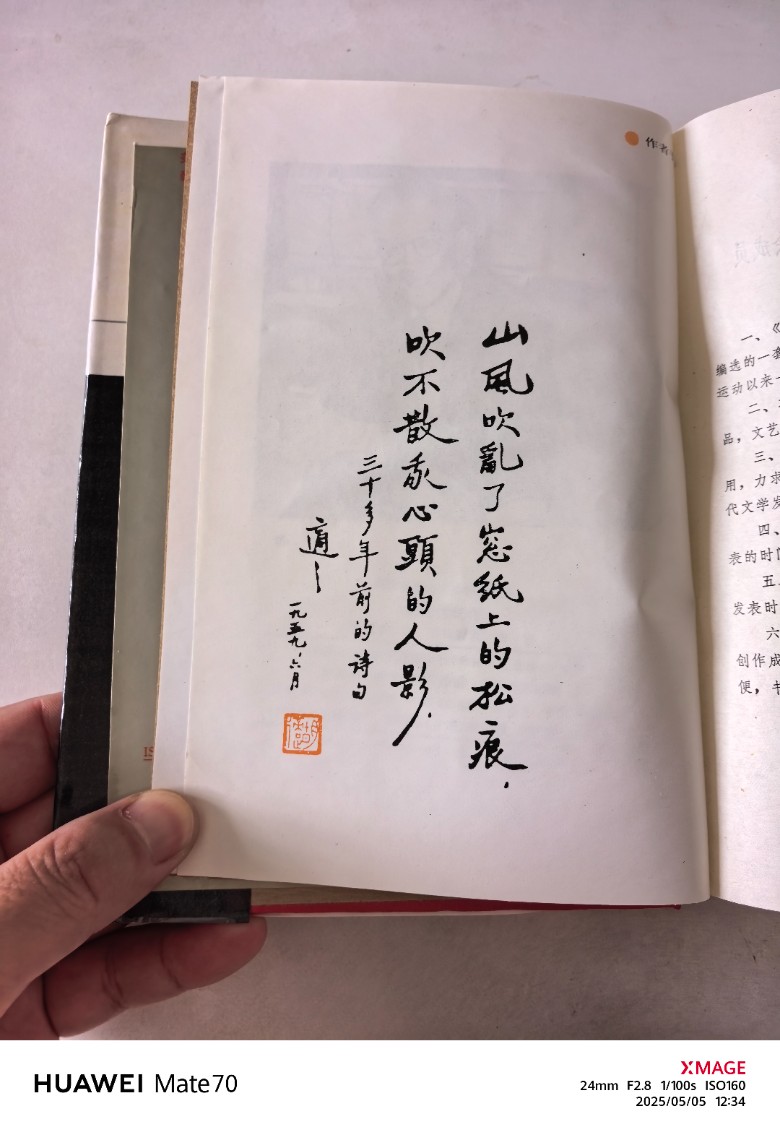 作者
山风吹亂了窓紙上的松痕，
吹不散我心頭的人影．
三十多年前的诗句
適之
一九五九，六月
一、《
编选的一套
运动以来一
二、
品，文艺
三、
用，力求
代文学发
四、
表的时间
五
发表时
六
创作成
便，
HUAWEI Mate70
XMAGE
24mm F2.8 1/100s ISO160
2025/05/05 12:34